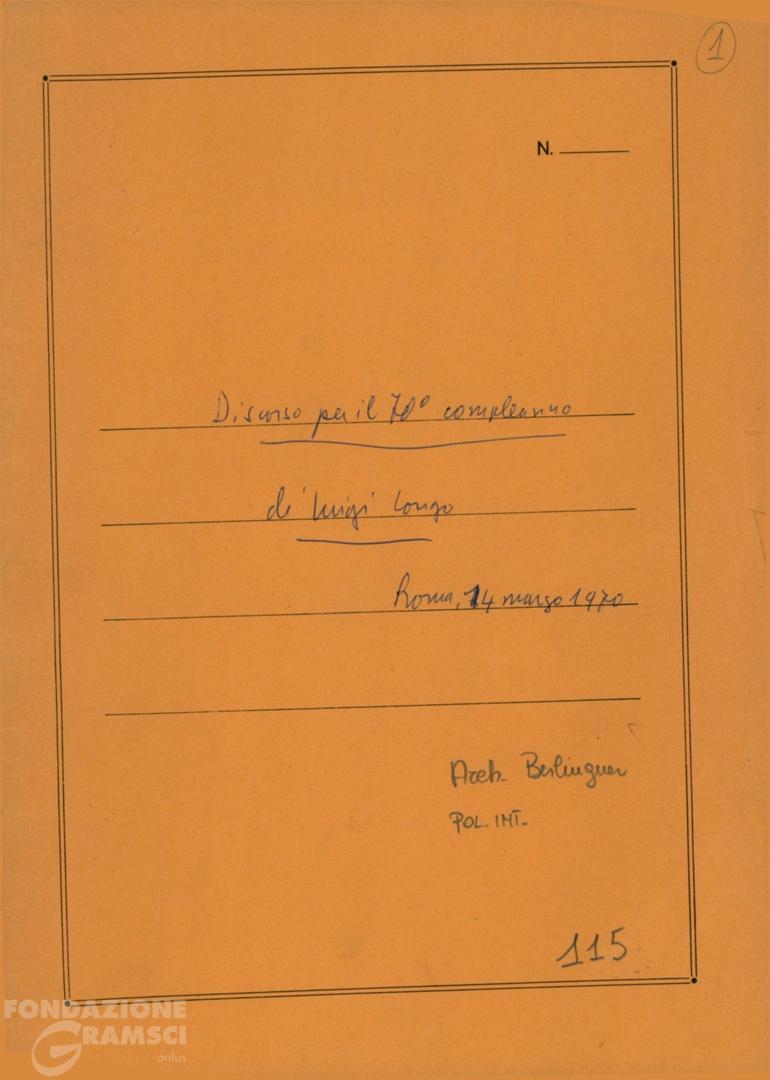 1
N.
Discorso per il 70° compleanno
di Luigi Longo
Roma, 14 marzo 1970
Arch. Berlinguer
POL. INT.
115
FONDAZIONE
GRAMSCI
onlus